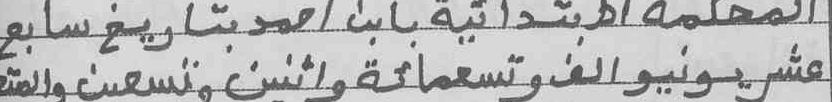 المحكمة الابتدائية بابن احمد بتاريخ سابع
عشر يونيو الف وتسعمائة واثنين وتسعين والمتع